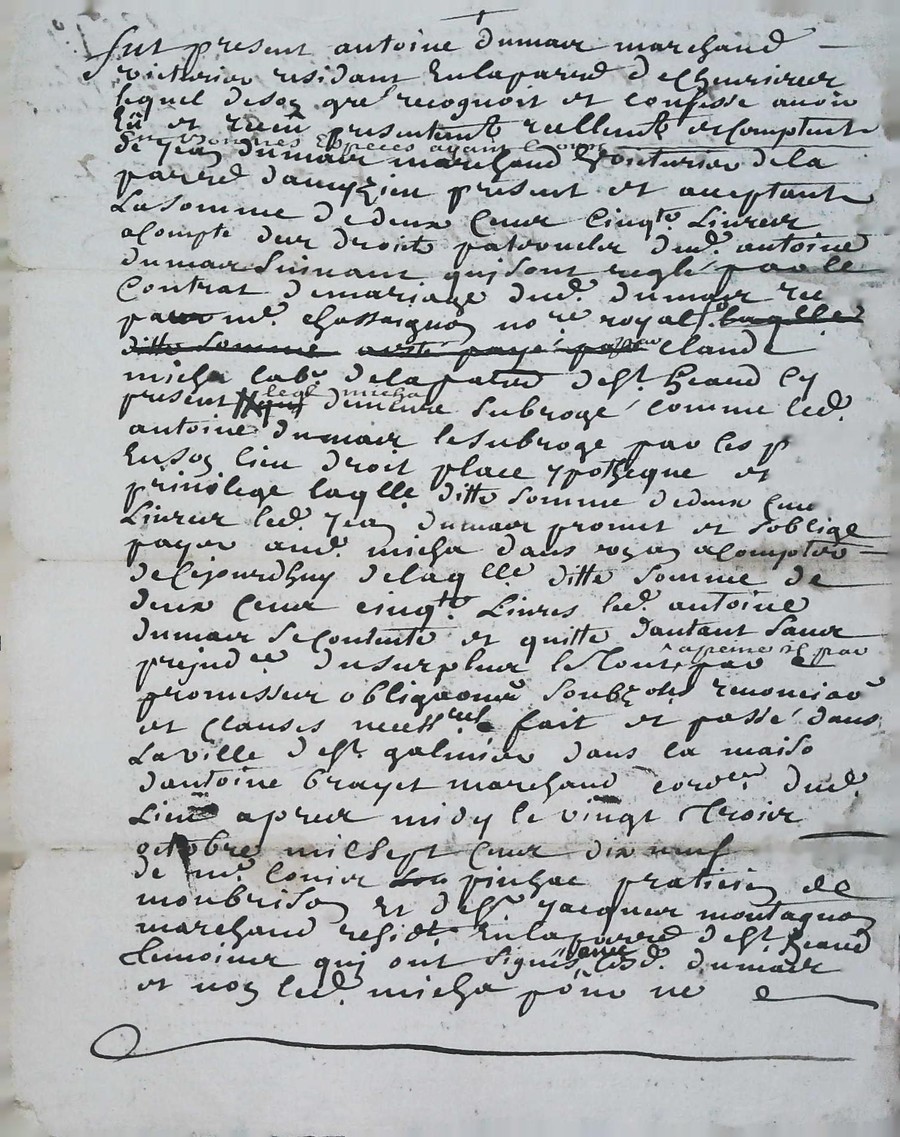 fut present antoine dumair marchand
victurier residant en la parre de cheurieres
lequel de son gré recognoit et confesse avoir
Eu et receu presentemt reellemt et comptant
En bonnes Espèces ayant cours
de jean dumair marchand voicturier de la
parre d'aveyzieu present et acceptant
La somme de deux Cent Cinqte Livres
acompte des droits paternels dud. antoine
dumair suivant qui sont reglé par le
Contrat de mariage dud. dumair reçu
par me. chassaignon nore royal laqlle
ditte somme payé claude
micha labr de la parre de st heand cy
present leql micha demeure subrogé comme led.
antoine dumair le subroge par ces p
En son lieu droit place ypotheque et
privilege laqlle ditte somme de deux cent
Livres led. jean dumair promet et soblige
payer aud. micha dans a compter
de Cejourdhuy de laqlle ditte somme de
deux Cent cinqte Livres led. antoine
dumair se contente et quitte dautant sans
prejudce du surplus le tout a peine et par
promesses obligaons soubzons renonciaons
et clauses necessres fait et passé dans
La ville de st galmier dans la maison
dantoine brayet marchand cordier dud.
Lieu apres midy le vingt Trois
octobre mil sept Cent dix neuf
de me. Louis pinhac praticien de
monbrison et de sr jacques montagnon
marchand residt En la parre de st heand
Temoins qui ont signés avec lesd. dumair
et non led. micha pour ne